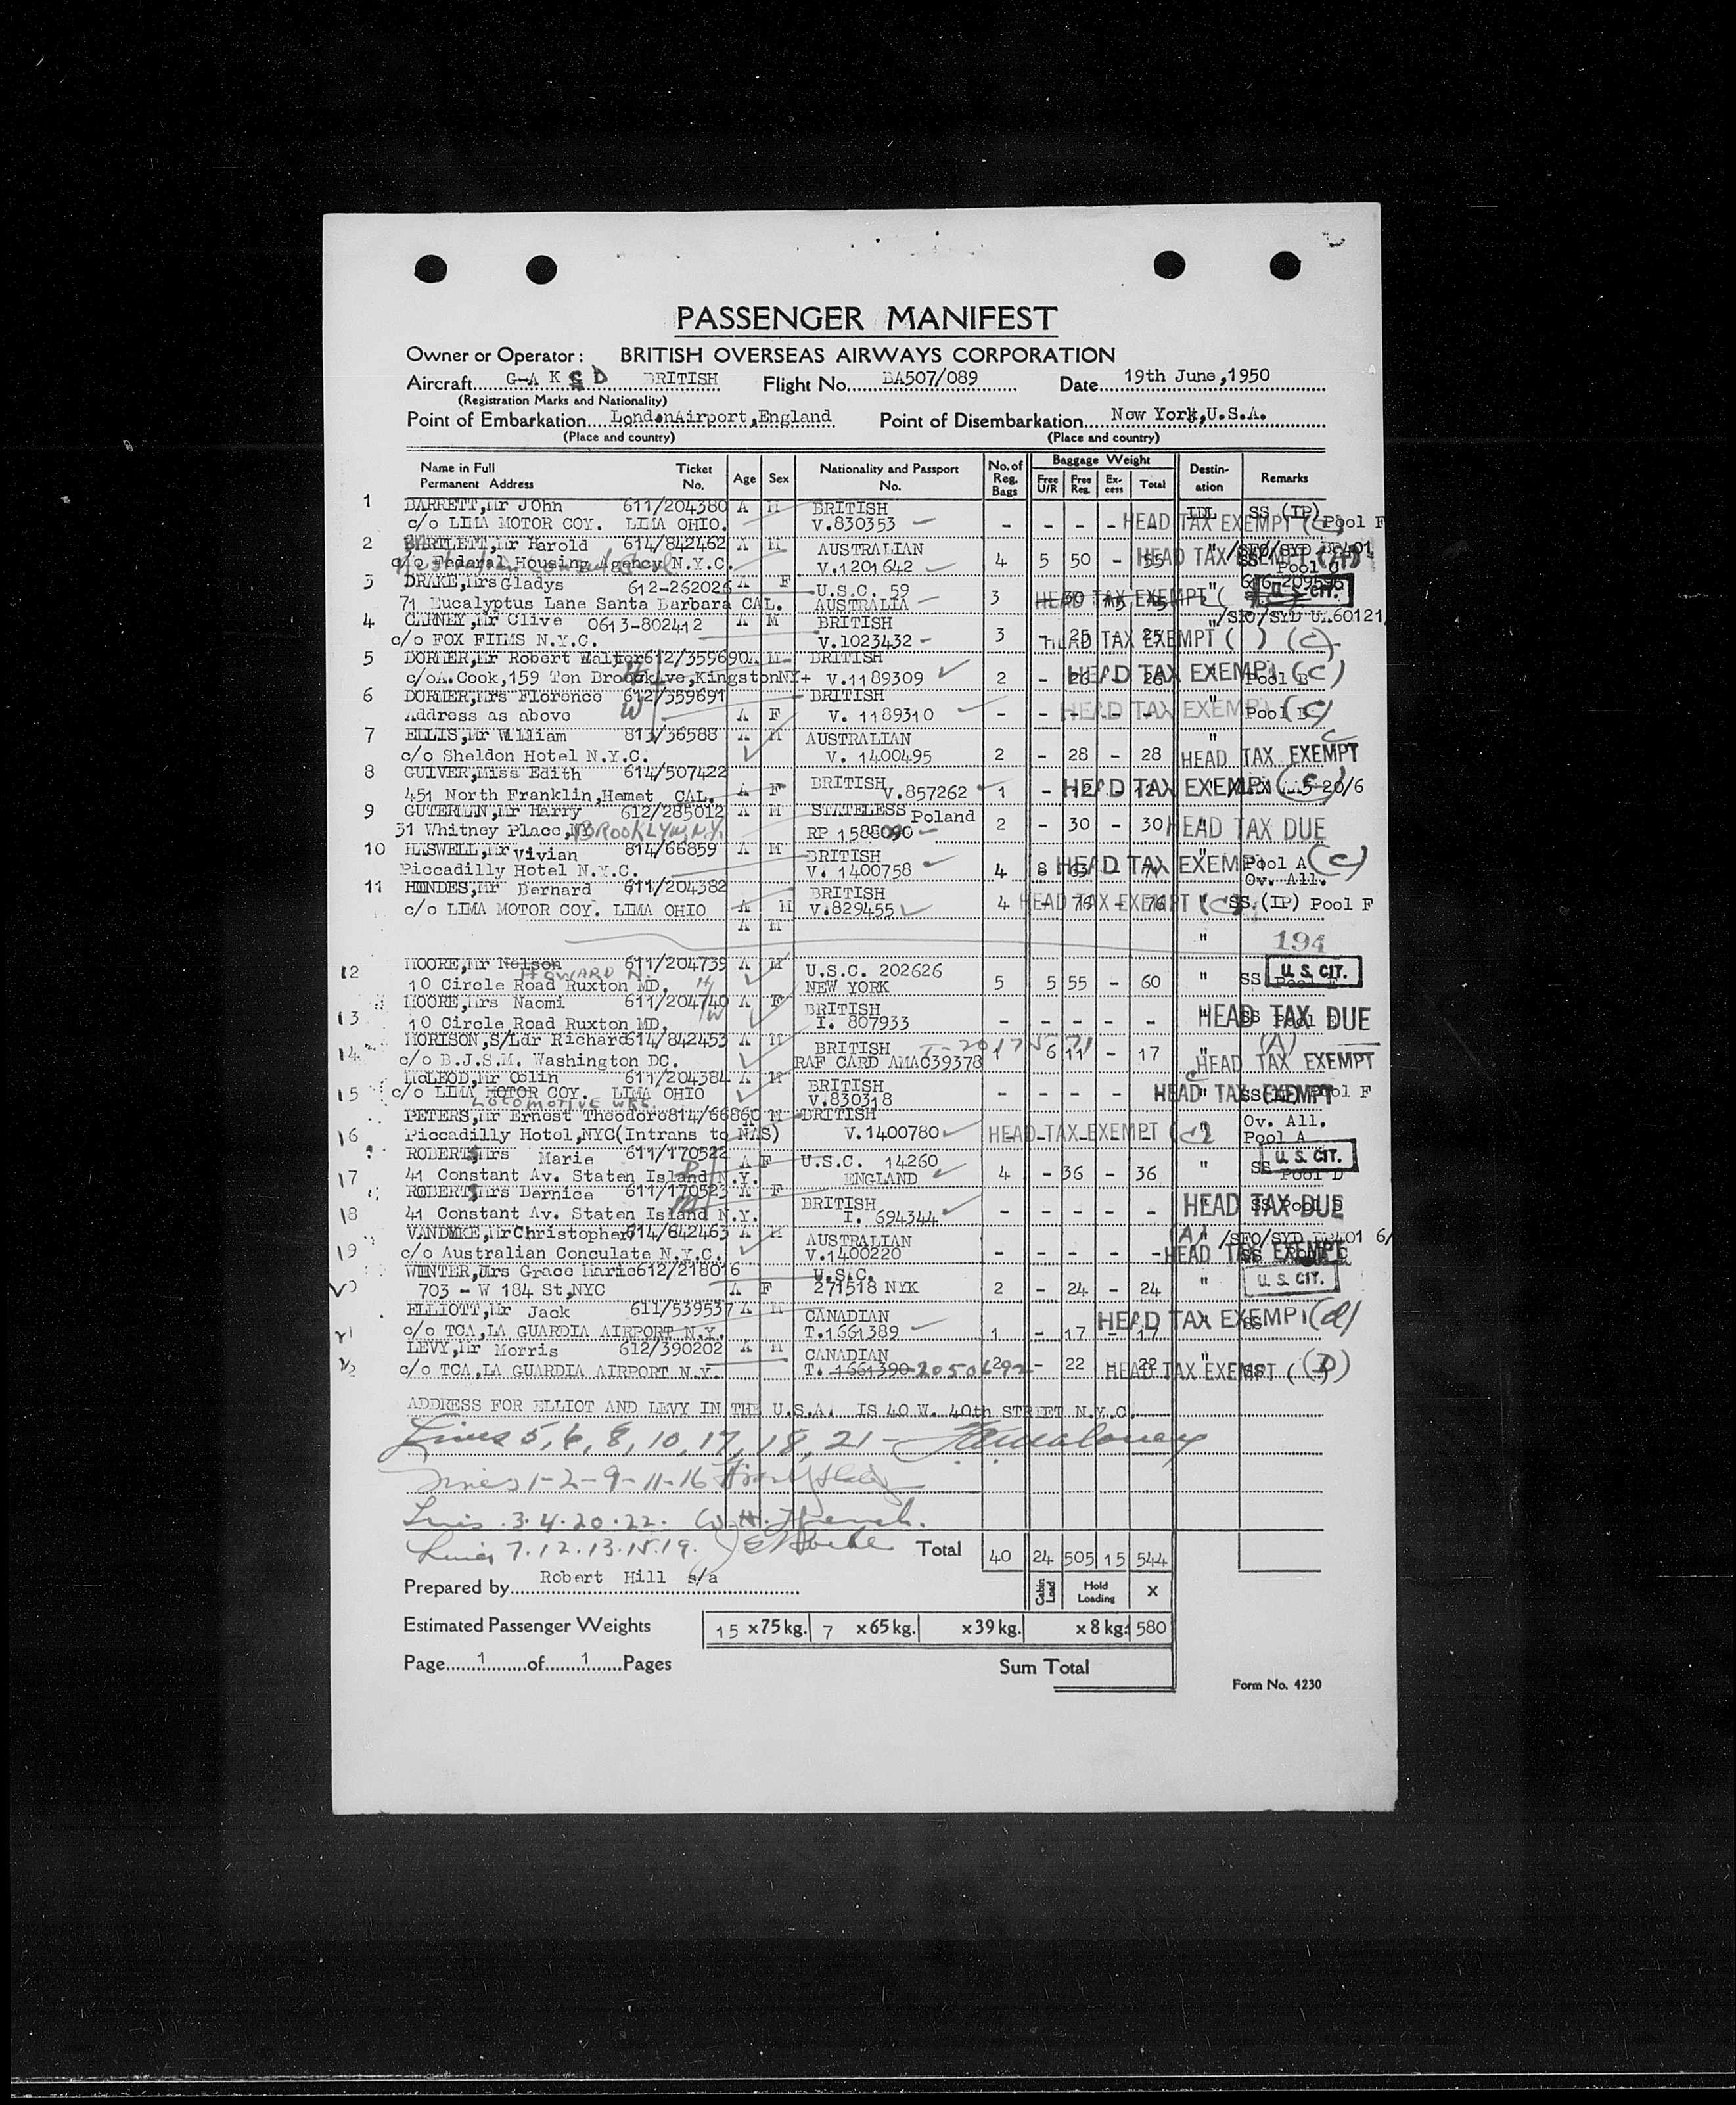 PASSENGER MANIFEST
Owner or Operator: BRITISH OVERSEAS AIRWAYS CORPORATION
Aircraft G-A K G D BRITISH Flight No. BA507/089 Date 19th June,1950
(Registration Marks and Nationality)
Point of Embarkation LondonAirport,England Point of Disembarkation New York,U.S.A.
(Place and country) (Place and country)
Name in Full Permanent Address Ticket No. Age Sex Nationality and Passport No. No. of Reg. Bags Baggage Weight Free U/R Free Reg. Excess Total Destination Remarks
1 BARRETT,Mr JOhn 611/204380 A M BRITISH IDL SS (IP)
c/o LIMA MOTOR COY. LIMA OHIO. V.830353 - - - - HEAD TAX EXEMPT Pool F
2 BARTLETT,Mr Harold 614/842462 A M AUSTRALIAN " /SFO/SYD BP401
c/o Federal Housing Agency N.Y.C. V.1201642 4 5 50 - 55 HEAD TAX EXEMPT SS Pool C
3 DRAKE,Mrs Gladys 612-262026 A F U.S.C. 59
71 Eucalyptus Lane Santa Barbara CAL. AUSTRALIA 3 - 30 HEAD TAX EXEMPT ( U.S. CIT.
4 CARNEY,Mr Clive 0613-802412 A M BRITISH " /SFO/SYD UA60121
c/o FOX FILMS N.Y.C. V.1023432 - 3 - 25 - 25 HEAD TAX EXEMPT ( ) (C)
5 DORMER,Mr Robert Walter 612/359690 A M BRITISH
c/o A.Cook,159 Ten Broek Ave,Kingston NY+ V.1189309 2 - 26 - 26 HEAD TAX EXEMPT Pool B (C)
6 DORMER,Mrs Florence 612/359691 BRITISH "
Address as above W A F V. 1189310 - - - - - HEAD TAX EXEMPT Pool B (C)
7 ELLIS,Mr William 813/36588 A M AUSTRALIAN " C
c/o Sheldon Hotel N.Y.C. V. 1400495 2 - 28 - 28 HEAD TAX EXEMPT
8 GUIVER,Miss Edith 614/507422 BRITISH
451 North Franklin,Hemet CAL. A F V.857262 1 - 12 - 12 HEAD TAX EXEMPT (C) 20/6
9 GUTERMAN,Mr Harry 612/285012 A M STATELESS Poland
31 Whitney Place,NY BROOKLYN,N.Y. RP 158 2 - 30 - 30 HEAD TAX DUE
10 HASWELL,Mr Vivian 814/66859 A M BRITISH "
Piccadilly Hotel N.Y.C. V. 1400758 4 8 63 - 71 HEAD TAX EXEMPT Pool A Ov. All. (C)
11 HINDES,Mr Bernard 611/204382 BRITISH
c/o LIMA MOTOR COY. LIMA OHIO A M V.829455 4 - 76 - 76 HEAD TAX EXEMPT (C) " SS.(IP) Pool F
A M " 194
12 MOORE,Mr Nelson HOWARD N. 611/204739 A M U.S.C. 202626 U.S. CIT.
10 Circle Road Ruxton MD. H NEW YORK 5 5 55 - 60 " SS Pool E
13 MOORE,Mrs Naomi 611/204740 A F BRITISH
10 Circle Road Ruxton MD. W I. 807933 - - - - - HEAD TAX DUE SS Pool E
14 MORISON,S/Ldr Richard 614/842453 A M BRITISH (A)
c/o B.J.S.M. Washington DC. RAF CARD AMAC39378 1 6 11 - 17 HEAD TAX EXEMPT
15 McLEOD,Mr Colin 611/204384 A M BRITISH C
c/o LIMA MOTOR COY. LIMA OHIO V.830318 - - - - - HEAD TAX EXEMPT " SS(IP) Pool F
LOCOMOTIVE WKS.
16 PETERS,Mr Ernest Theodore 814/66860 M BRITISH Ov. All.
Piccadilly Hotel,NYC(Intrans to NAS) V.1400780 HEAD TAX EXEMPT (C) " Pool A
17 ROBERTS,Mrs Marie 611/170522 A F U.S.C. 14260 U.S. CIT.
41 Constant Av. Staten Island N.Y. ENGLAND 4 - 36 - 36 " SS Pool D
18 ROBERTS,Mrs Bernice 611/170523 A F BRITISH
41 Constant Av. Staten Island N.Y. I. 694344 - - - - - HEAD TAX DUE SS Pool D
19 VANDYKE,Mr Christopher 614/842463 A M AUSTRALIAN (A) " /SFO/SYD BP401 6/
c/o Australian Conculate N.Y.C. V.1400220 - - - - - HEAD TAX EXEMPT SS Pool C
20 WINTER,Mrs Grace Marie 612/218016 U.S.C.
703 - W 184 St,NYC A F 271518 NYK 2 - 24 - 24 " U.S. CIT.
21 ELLIOTT,Mr Jack 611/539537 A M CANADIAN
c/o TCA,LA GUARDIA AIRPORT N.Y. T.1661389 1 - 17 - 17 HEAD TAX EXEMPT SS (d)
22 LEVY,Mr Morris 612/390202 A M CANADIAN
c/o TCA,LA GUARDIA AIRPORT N.Y. T. 1661390 2050692 2 - 22 - 22 HEAD TAX EXEMPT " SS (D)
ADDRESS FOR ELLIOT AND LEVY IN THE U.S.A. IS 40 W. 40th STREET N.Y.C.
Lines 5, 6, 8, 10, 17, 18, 21 -
Lines 1-2-9-11-16
Lines .3.4.20.22. W.H. French.
Lines 7.12.13.15.19. Total 40 24 505 15 544
Prepared by Robert Hill s/a Cabin Load Hold Loading X
Estimated Passenger Weights 15 x75kg. 7 x65kg. x39kg. x8kg. 580
Page 1 of 1 Pages Sum Total
Form No. 4230